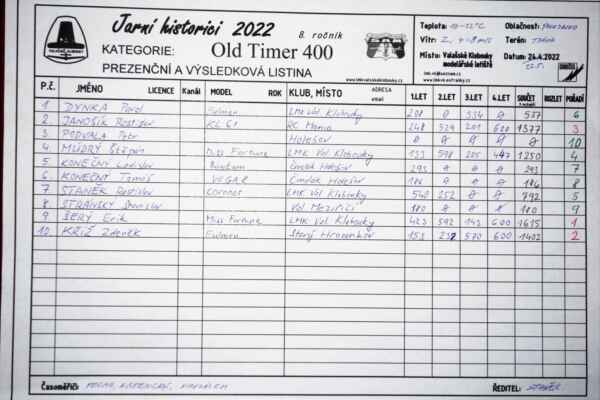 Jarní historici 2022 8. ročník
KATEGORIE: Old Timer 400
PREZENČNÍ A VÝSLEDKOVÁ LISTINA
Teplota: Oblačnost:
Vítr: Terén:
Místo: Valašské Klobouky
modelářské letiště
Datum: 24.4.2022
P.č. JMÉNO LICENCE Kanál MODEL ROK KLUB, MÍSTO ADRESA email 1.LET 2.LET 3.LET 4.LET SOUČET ROZLET POŘADÍ
1 DYNKA Pavel LMK Val Klobouky 208 0 334 0 6
2 JANOŠÍK Rostislav KL 61 RC Mania 248 529 201 600 1377 3
3 PODVALA Petr Holešov 10
4 MUDRÝ Štěpán Miss Fortune LMK Val. Klobouky 133 598 205 447 1250 4
5 KONEČNÝ Ladislav Holešov 293 0 0 0 293 7
6 KONEČNÝ Tomáš VEGAR Holešov 186 8
7 STANĚK Rostislav LMK Val Klobouky 540 252 0 0 792 5
8 STRÁNSKÝ Val Meziříčí 180 0 0 180 9
9 ŠERÝ Erik Miss Fortune LMK Val Klobouky 423 592 143 600 1615 1
10 KŘÍŽ Zdeněk Starý Hrozenkov 153 232 570 600 1402 2
Časoměřiči: ŘEDITEL: